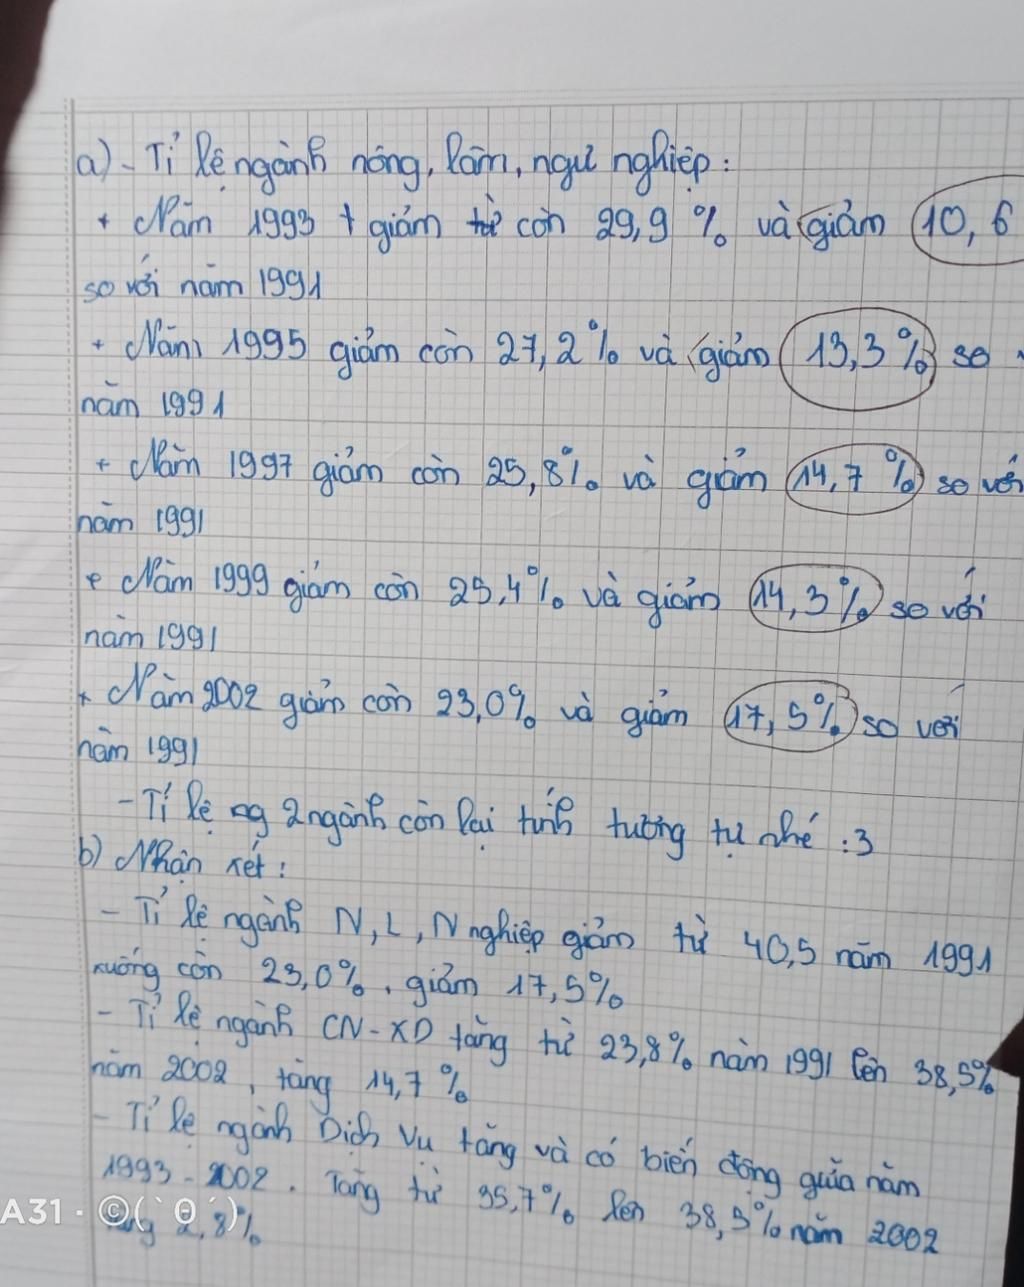 a) - Tỉ lệ ngành nông, lâm, ngư nghiệp:
+ Năm 1993 + giảm từ còn 29,9 % và giảm 10,6
so với năm 1991
+ Năm 1995 giảm còn 27,2% và giảm 13,3% so
năm 1991
+ Năm 1997 giảm còn 25,8% và giảm 14,7 % so với
năm 1991
+ Năm 1999 giảm còn 25,4% và giảm 14,3% so với
năm 1991
+ Năm 2002 giảm còn 23,0% và giảm 17,5% so với
năm 1991
- Tỉ lệ ng 2 ngành còn lại tính tương tự nhé :3
b) Nhận xét:
- Tỉ lệ ngành N, L, N nghiệp giảm từ 40,5 năm 1991
xuống còn 23,0%, giảm 17,5%
- Tỉ lệ ngành CN-XD tăng từ 23,8% năm 1991 lên 38,5%
năm 2002, tăng 14,7 %
- Tỉ lệ ngành Dịch Vụ tăng và có biến động giữa năm
1993 - 2002. Tăng từ 35,7% lên 38,5% năm 2002
2,8%
A31 · ©(`θ´)